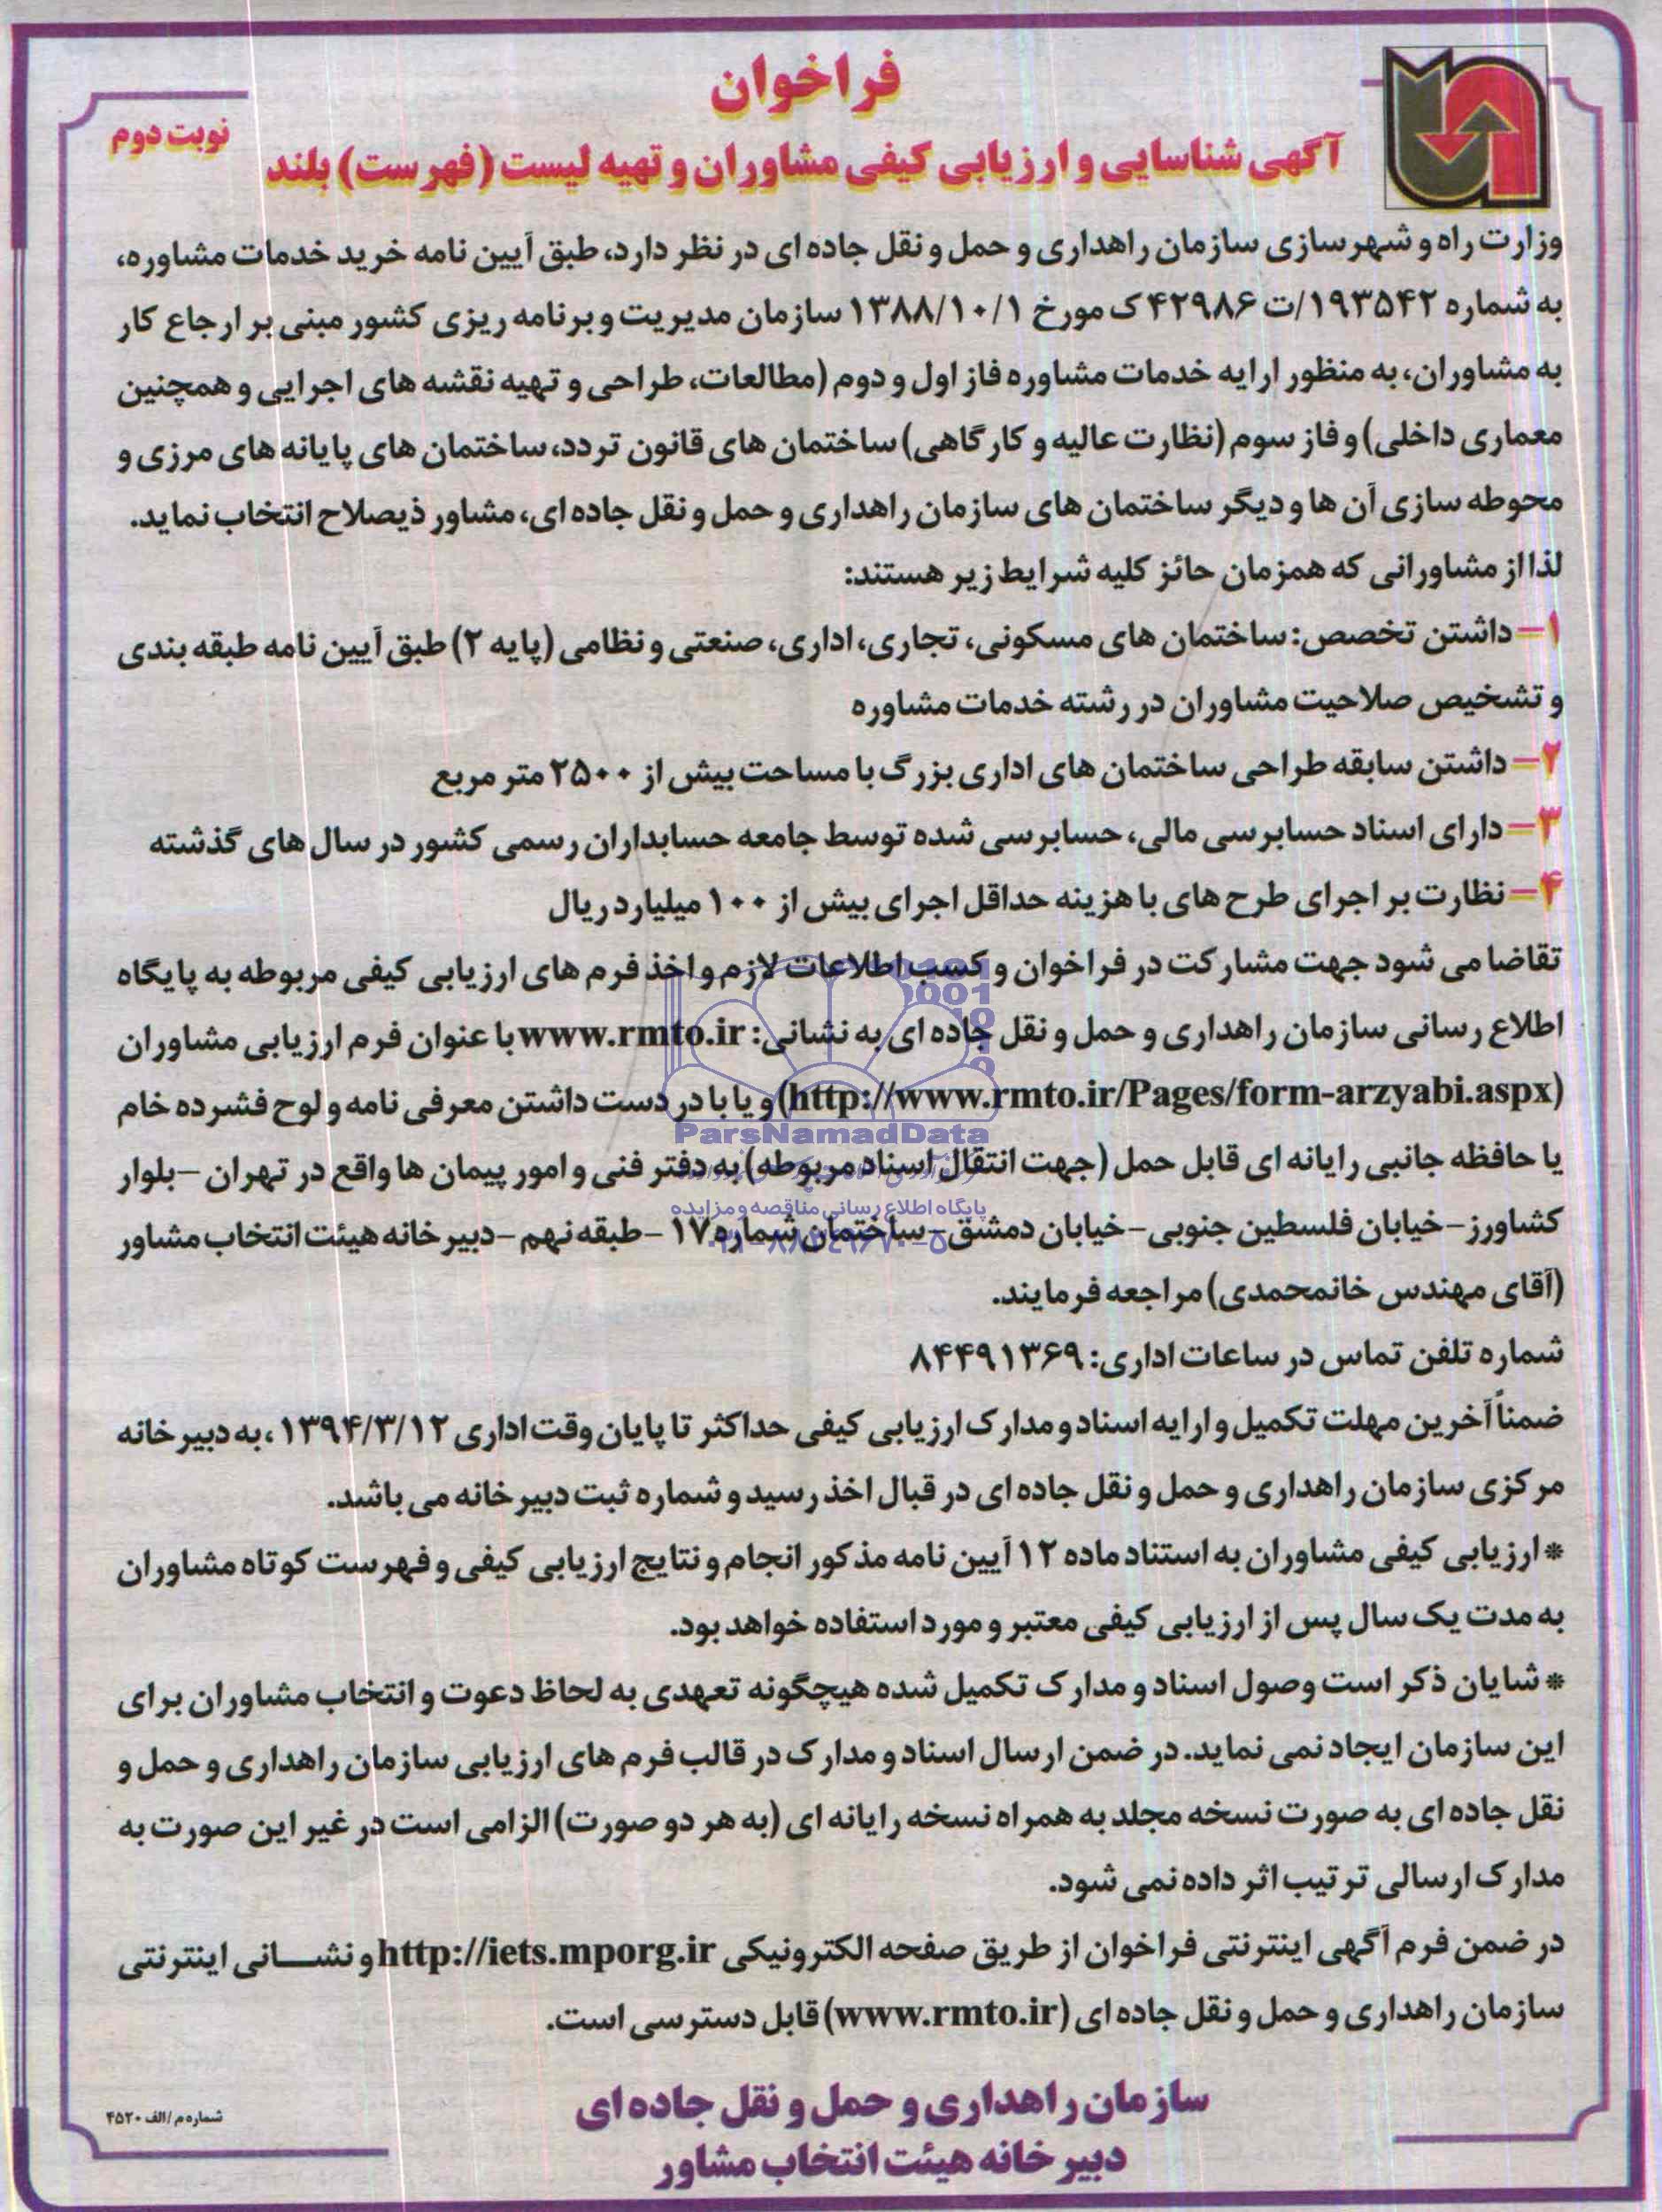 فراخوان
نوبت دوم
آگهی شناسایی و ارزیابی کیفی مشاوران و تهیه لیست (فهرست) بلند
وزارت راه و شهرسازی سازمان راهداری و حمل و نقل جاده ای در نظر دارد، طبق آیین نامه خرید خدمات مشاوره،
به شماره ۱۹۳۵۴۲/ت ۴۲۹۸۶ ک مورخ ۱۳۸۸/۱۰/۱ سازمان مدیریت و برنامه ریزی کشور مبنی بر ارجاع کار
به مشاوران، به منظور ارایه خدمات مشاوره فاز اول و دوم (مطالعات، طراحی و تهیه نقشه های اجرایی و همچنین
معماری داخلی) و فاز سوم (نظارت عالیه و کارگاهی) ساختمان های قانون تردد، ساختمان های پایانه های مرزی و
محوطه سازی آن ها و دیگر ساختمان های سازمان راهداری و حمل و نقل جاده ای، مشاور ذیصلاح انتخاب نماید.
لذا از مشاورانی که همزمان حائز کلیه شرایط زیر هستند:
۱– داشتن تخصص: ساختمان های مسکونی، تجاری، اداری، صنعتی و نظامی (پایه ۲) طبق آیین نامه طبقه بندی
و تشخیص صلاحیت مشاوران در رشته خدمات مشاوره
۲– داشتن سابقه طراحی ساختمان های اداری بزرگ با مساحت بیش از ۲۵۰۰ متر مربع
۳– دارای اسناد حسابرسی مالی، حسابرسی شده توسط جامعه حسابداران رسمی کشور در سال های گذشته
۴– نظارت بر اجرای طرح های با هزینه حداقل اجرای بیش از ۱۰۰ میلیارد ریال
تقاضا می شود جهت مشارکت در فراخوان و کسب اطلاعات لازم و اخذ فرم های ارزیابی کیفی مربوطه به پایگاه
اطلاع رسانی سازمان راهداری و حمل و نقل جاده ای به نشانی: www.rmto.ir با عنوان فرم ارزیابی مشاوران
(http://www.rmto.ir/Pages/form-arzyabi.aspx) و یا با در دست داشتن معرفی نامه و لوح فشرده خام
ParsNamadData
یا حافظه جانبی رایانه ای قابل حمل (جهت انتقال اسناد مربوطه) به دفتر فنی و امور پیمان ها واقع در تهران –بلوار
پایگاه اطلاع رسانی مناقصه و مزایده
کشاورز– خیابان فلسطین جنوبی– خیابان دمشق– ساختمان شماره ۱۷ –طبقه نهم –دبیرخانه هیئت انتخاب مشاور
(آقای مهندس خانمحمدی) مراجعه فرمایند.
شماره تلفن تماس در ساعات اداری: ۸۴۴۹۱۳۶۹
ضمناً آخرین مهلت تکمیل و ارایه اسناد و مدارک ارزیابی کیفی حداکثر تا پایان وقت اداری ۱۳۹۴/۳/۱۲ ، به دبیرخانه
مرکزی سازمان راهداری و حمل و نقل جاده ای در قبال اخذ رسید و شماره ثبت دبیرخانه می باشد.
* ارزیابی کیفی مشاوران به استناد ماده ۱۲ آیین نامه مذکور انجام و نتایج ارزیابی کیفی و فهرست کوتاه مشاوران
به مدت یک سال پس از ارزیابی کیفی معتبر و مورد استفاده خواهد بود.
* شایان ذکر است وصول اسناد و مدارک تکمیل شده هیچگونه تعهدی به لحاظ دعوت و انتخاب مشاوران برای
این سازمان ایجاد نمی نماید. در ضمن ارسال اسناد و مدارک در قالب فرم های ارزیابی سازمان راهداری و حمل و
نقل جاده ای به صورت نسخه مجلد به همراه نسخه رایانه ای (به هر دو صورت) الزامی است در غیر این صورت به
مدارک ارسالی ترتیب اثر داده نمی شود.
در ضمن فرم آگهی اینترنتی فراخوان از طریق صفحه الکترونیکی http://iets.mporg.ir و نشـــانی اینترنتی
سازمان راهداری و حمل و نقل جاده ای (www.rmto.ir) قابل دسترسی است.
سازمان راهداری و حمل و نقل جاده ای
دبیرخانه هیئت انتخاب مشاور
شماره م/الف ۴۵۲۰